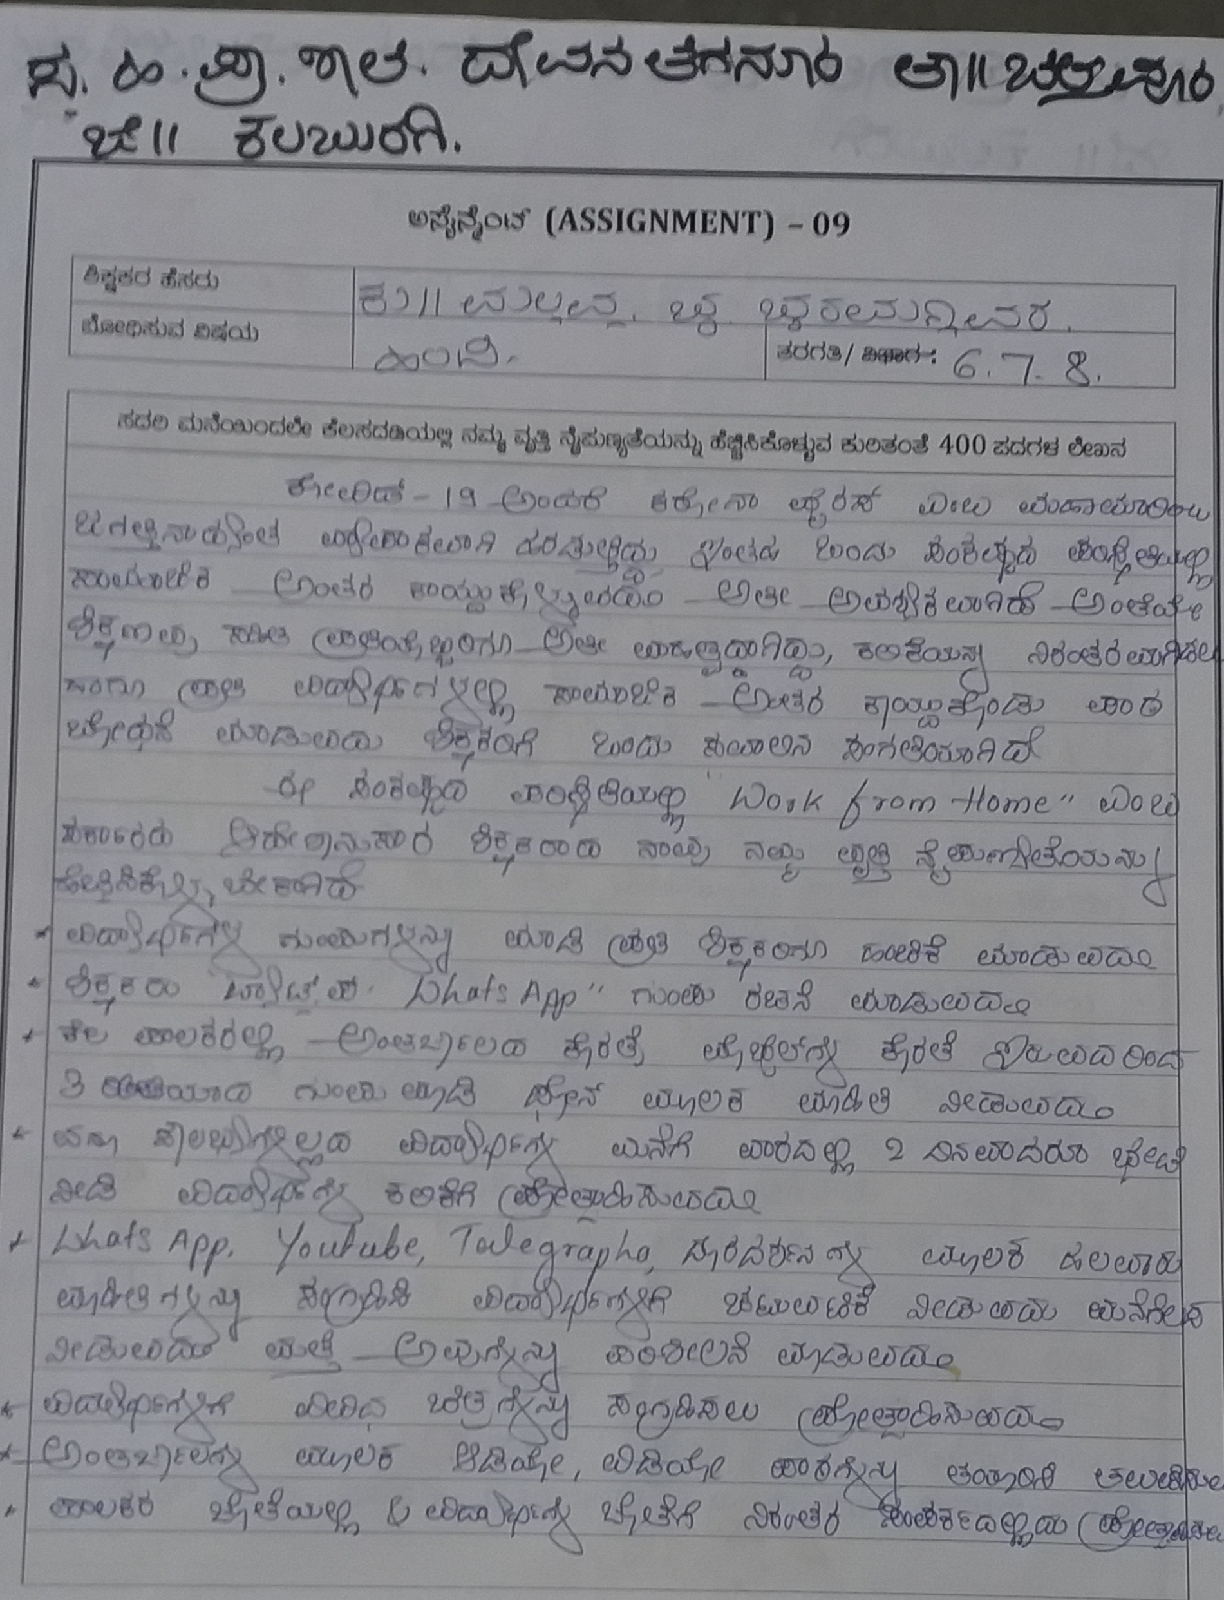 ಸ. ಹಿ. ಪ್ರಾ. ಶಾಲೆ. ದೇವನ ತೆಗನೂರ ತಾ||
ಜಿ|| ಕಲಬುರಗಿ.
ಅಸೈನ್ಮೆಂಟ್ (ASSIGNMENT) – 09
ಶಿಕ್ಷಕರ ಹೆಸರು
ಕು||
ಬೋಧಿಸುವ ವಿಷಯ
ಹಿಂದಿ.
ತರಗತಿ/ ವಿಷಾಗ: 6. 7. 8.
ಸದರಿ ಮನೆಯಿಂದಲೇ ಕೆಲಸದಡಿಯಲ್ಲಿ ನಮ್ಮ ವೃತ್ತಿ ನೈಪುಣ್ಯತೆಯನ್ನು ಹೆಚ್ಚಿಸಿಕೊಳ್ಳುವ ಕುರಿತಂತೆ 400 ಪದಗಳ ಲೇಖನ
ಕೋವಿಡ್ - 19 ಅಂದರೆ ಕರೋನಾ ವೈರಸ್ ಎಂಬ ಮಹಾಮಾರಿಯು
ಜಗತ್ತಿನಾದ್ಯಂತ ಹರಡುತ್ತಿದ್ದು ಇಂತಹ ಒಂದು ಸಂಕಷ್ಟದ ಪರಿಸ್ಥಿತಿಯಲ್ಲಿ
ಸಾಮಾಜಿಕ ಅಂತರ ಕಾಯ್ದುಕೊಳ್ಳುವುದು ಅತೀ ಅವಶ್ಯಕವಾಗಿದೆ ಅಂತೆಯೇ
ಶಿಕ್ಷಣವು ಸಹಿತ ಪ್ರತಿಯೊಬ್ಬರಿಗೂ ಅತೀ ಮಹತ್ವದ್ದಾಗಿದ್ದು, ಕಲಿಕೆಯನ್ನು
ಹಾಗೂ ಪ್ರತಿ ವಿದ್ಯಾರ್ಥಿಗಳಲ್ಲಿ ಸಾಮಾಜಿಕ ಅಂತರ ಕಾಯ್ದುಕೊಂಡು ಪಾಠ
ಬೋಧನೆ ಮಾಡುವುದು ಶಿಕ್ಷಕರಿಗೆ ಒಂದು ಸವಾಲಿನ ಸಂಗತಿಯಾಗಿದೆ
ಈ ಸಂಕಷ್ಟದ ಪರಿಸ್ಥಿತಿಯಲ್ಲಿ Work from Home" ಎಂಬ
ಸರ್ಕಾರದ ಆದೇಶಾನುಸಾರ ಶಿಕ್ಷಕರಾದ ನಾವು ನಮ್ಮ ವೃತ್ತಿ ನೈಪುಣ್ಯತೆಯನ್ನು
ಹೆಚ್ಚಿಸಿಕೊಳ್ಳಬೇಕಾಗಿದೆ
* ವಿದ್ಯಾರ್ಥಿಗಳ ಗುಂಪುಗಳನ್ನು ಮಾಡಿ ಪ್ರತಿ ಶಿಕ್ಷಕರಿಗೂ ಹಂಚಿಕೆ ಮಾಡುವುದು
* ಶಿಕ್ಷಕರು Whats App" ಗುಂಪು ರಚನೆ ಮಾಡುವುದು
* ಕೆಲ ಪಾಲಕರಲ್ಲಿ ಅಂತರ್ಜಾಲದ ಕೊರತೆ, ಮೊಬೈಲ್‌ಗಳ ಕೊರತೆ ಇರುವುದರಿಂದ
ಗುಂಪು ಮಾಡಿ ಫೋನ್ ಮೂಲಕ ಮಾಹಿತಿ ನೀಡುವುದು
* ಸೌಲಭ್ಯಗಳಿಲ್ಲದ ವಿದ್ಯಾರ್ಥಿಗಳ ಮನೆಗೆ ವಾರದಲ್ಲಿ 2 ದಿನವಾದರೂ ಭೇಟಿ
ನೀಡಿ ವಿದ್ಯಾರ್ಥಿಗಳ ಕಲಿಕೆಗೆ ಪ್ರೋತ್ಸಾಹಿಸುವುದು
* Whats App, Youtube, Telegrapha, ದೂರದರ್ಶನಗಳ ಮೂಲಕ ಹಲವಾರು
ಮಾಹಿತಿಗಳನ್ನು ಸಂಗ್ರಹಿಸಿ ವಿದ್ಯಾರ್ಥಿಗಳಿಗೆ ಚಟುವಟಿಕೆ ನೀಡುವುದು ಮನೆಗೆಲಸ
ನೀಡುವುದು ಮತ್ತೆ ಅವುಗಳನ್ನು ಪರಿಶೀಲನೆ ಮಾಡುವುದು
* ವಿದ್ಯಾರ್ಥಿಗಳಿಗೆ ವಿವಿಧ ಚಿತ್ರಗಳನ್ನು ಸಂಗ್ರಹಿಸಲು ಪ್ರೋತ್ಸಾಹಿಸುವುದು
* ಅಂತರ್ಜಾಲಗಳ ಮೂಲಕ ಆಡಿಯೋ, ವಿಡಿಯೋ ಪಾಠಗಳನ್ನು ತಯಾರಿಸಿ
* ಪಾಲಕರ ಜೊತೆಯಲ್ಲಿ & ವಿದ್ಯಾರ್ಥಿಗಳ ಜೊತೆಗೆ ನಿರಂತರ ಸಂಪರ್ಕದಲ್ಲಿದ್ದು